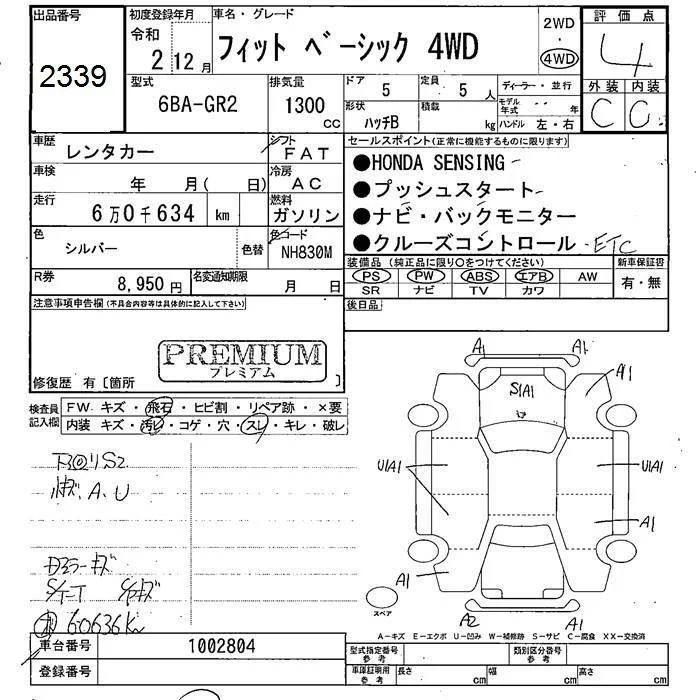 出品番号 初度登録年月 車名・グレード 2WD 評価点
令和
2 12月 フィット ベーシック 4WD ・ 4WD 4
2339
型式 排気量 ドア 5 定員 5人 ディーラー・並行 外装 内装
6BA-GR2 1300cc 形状 ハッチB 積載 kg モデル年式 年 C C
ハンドル 左・右
車歴 レンタカー シフト FAT セールスポイント(正常に機能するものに限ります)
車検 年 月( 日) 冷房 AC ●HONDA SENSING
走行 6万0千634 km 燃料 ガソリン ●プッシュスタート
●ナビ・バックモニター
色 シルバー 色替 色コード NH830M ●クルーズコントロール ETC
R券 8,950円 名変通知期限 月 日 装備品(純正品に限り○をつけてください) 新車保証書
PS PW ABS エアB AW 有・無
SR ナビ TV カワ
注意事項申告欄(不具合内容等は具体的に記入して下さい) 後日品
PREMIUM
プレミアム
修復歴 有〔箇所 〕
検査員記入欄 FW キズ・飛石・ヒビ割・リペア跡・×要
内装 キズ・汚レ・コゲ・穴・スレ・キレ・破レ
A1 A1
S1A1 A1
U1A1 U1A1
A1
A1
スペア
A2 A1
A,U
60636Km
A-キズ E-エクボ U-凹み W-補修跡 S-サビ C-腐食 XX-交換済
車台番号 1002804 型式指定番号 参考 類別区分番号 参考
登録番号 車庫証明用 参考 長さ cm 幅 cm 高さ cm